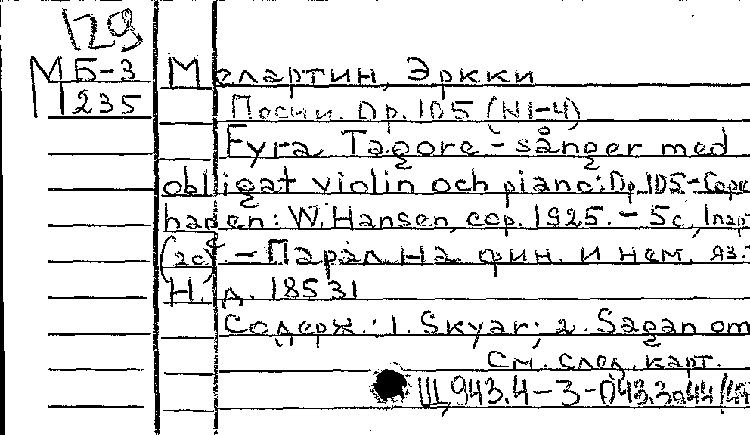 129
М Б-3 Мелартин, Эркки
1235 Песни. Op. 105 (N1-4)
Fyra Tagore-sånger med
obligat violin och piano: Op. 105 - Cope
hagen: W. Hansen, cop. 1925. - 5с, 1пар
(2с) - Парал. на фин. и нем. яз.
Н. д. 18531
Содерж.: 1. Skyar; 2. Sagan om
См. след. карт.
Щ 943.4-3-043.3а44